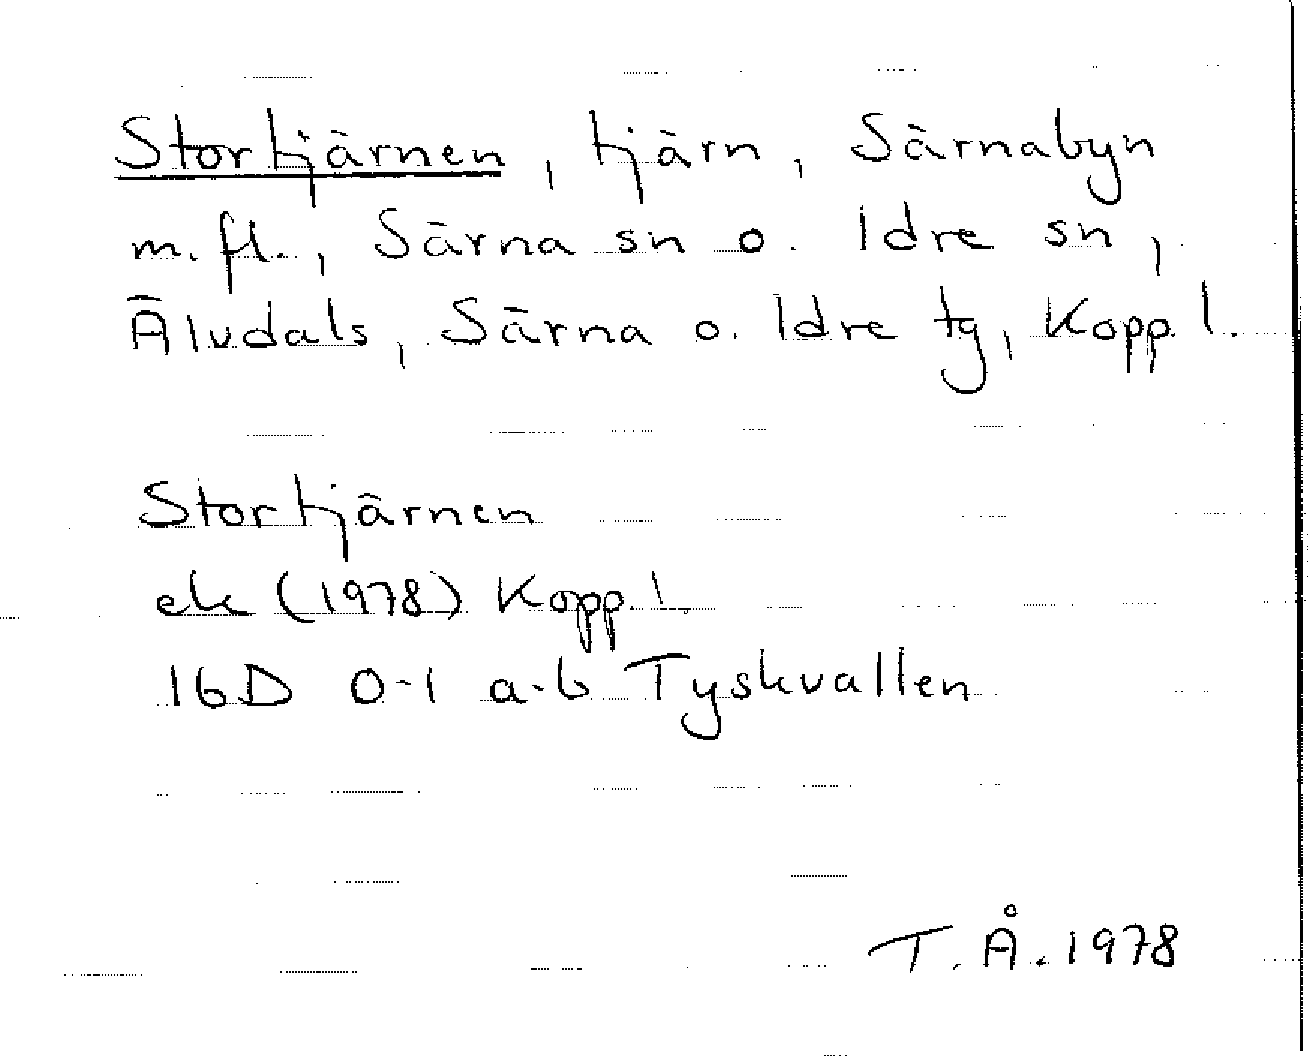 Stortjärnen, tjärn, Särnabyn
m.fl., Särna sn o. Idre sn,
Älvdals, Särna o. Idre tg, Kopp. l.
Stortjärnen
ek (1978) Kopp. l.
16D 0-1 a-b Tyskvallen
T.Å. 1978